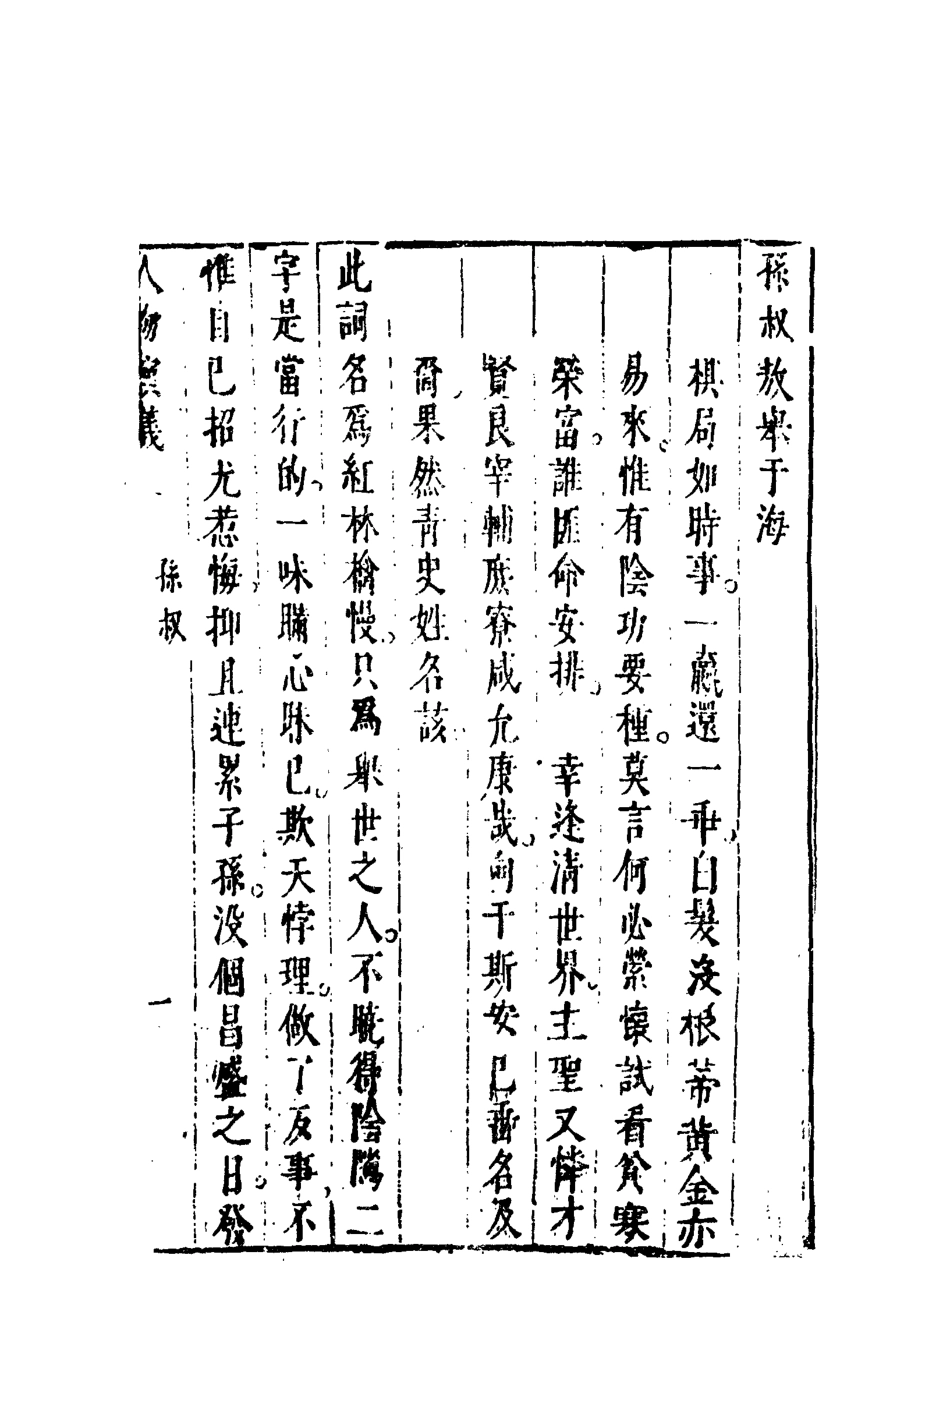 孫叔敖舉于海
棋局如時事一贏還一乖白髮没根蒂黃金亦
易來惟有陰功要種莫言何必縈懷試看貧寒
榮富誰匪命安排　幸逢清世界主聖又憐才
賢良宰輔庶寮咸允康哉向于斯安已垂名及
爾果然青史姓名該
此詞名爲紅林檎慢只爲舉世之人不曉得陰隲二
字是當行的一味瞞心昧己欺天悖理做了反事不
惟自己招尤惹悔抑且連累子孫没個昌盛之日發
人物演義　孫叔　一